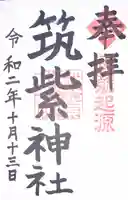 奉拝
筑紫神社
令和二年十月十三日